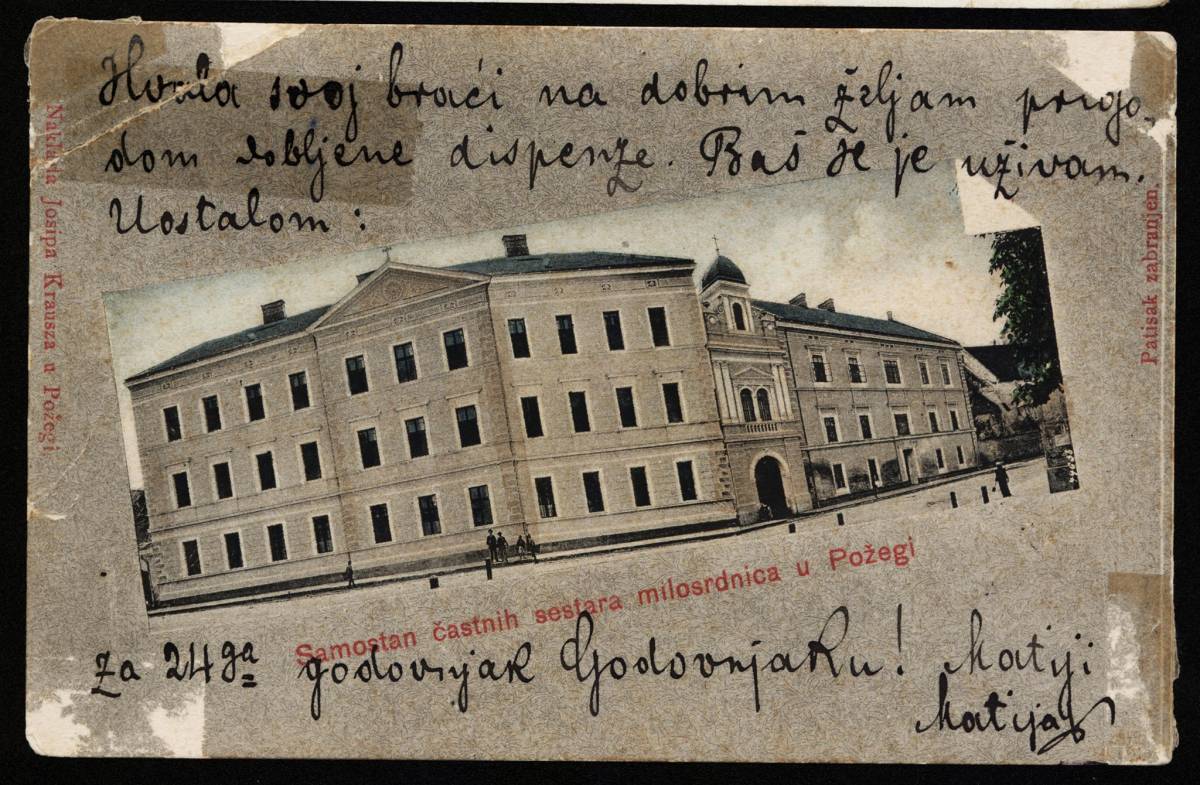 Hvala svoj braći na dobrim željam prigo-
dom dobljene dispenze. Baš je je uživam.
Uostalom:
Naklada Josipa Krausza u Požegi
Patisak zabranjen.
Samostan častnih sestara milosrdnica u Požegi
za 24ga godovnjak Godovnjaku! Matiji
Matija